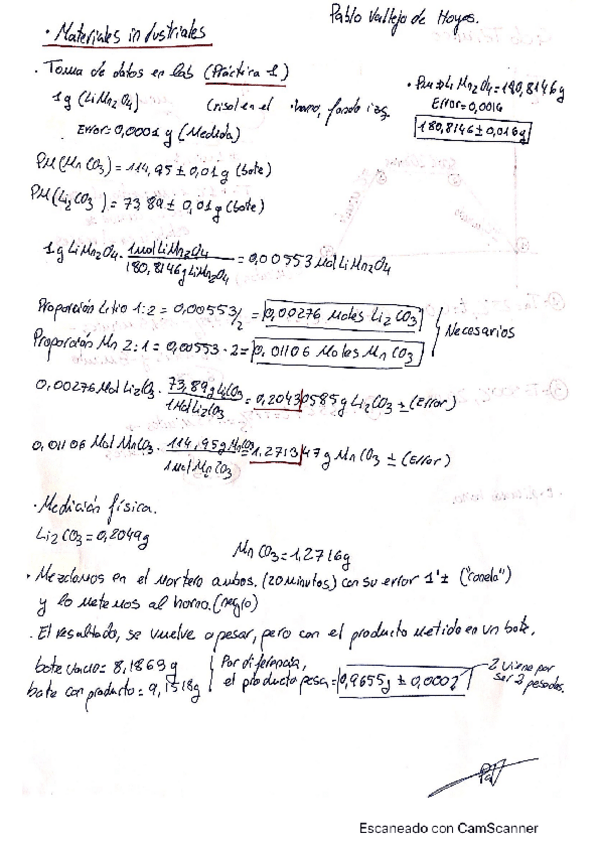 Pablo Vallejo de Hoyos.
· Materiales industriales
· Toma de datos en lab (Práctica 1)
1g (LiMn2O4) Crisol en el horno, fondo izq.
Error=0,0001 g (Medida)
· PM Li Mn2O4=180,8146g
Error=0,0016
180,8146±0,016g
PM(MnCO3)=114,95±0,01g (bote)
PM(Li2CO3)=73,89±0,01g (bote)
1g LiMn2O4· 1mol LiMn2O4 / 180,8146g LiMn2O4 = 0,00553 Mol LiMn2O4
Proporción Litio 1:2 = 0,00553/2 = 0,00276 Moles Li2CO3
Necesarios
Proporción Mn 2:1 = 0,00553·2= 0,01106 Moles MnCO3
0,00276 Mol Li2CO3· 73,89g Li2CO3 / 1Mol Li2CO3 = 0,20430585g Li2CO3 ± (Error)
0,01106 Mol MnCO3· 114,95g MnCO3 / 1mol MnCO3 = 1,271347g MnCO3 ± (Error)
· Medición física.
Li2CO3=0,2049g
MnCO3=1,2716g
· Mezclamos en el mortero ambos. (20 minutos) con su error 1'± ("canela")
y lo metemos al horno. (negro)
· El resultado, se vuelve a pesar, pero con el producto metido en un bote.
bote vacio= 8,1863g
bote con producto= 9,1518g
Por diferencia,
el producto pesa= 0,9655g ± 0,0002
2 viene por
ser 2 pesadas.
Escaneado con CamScanner